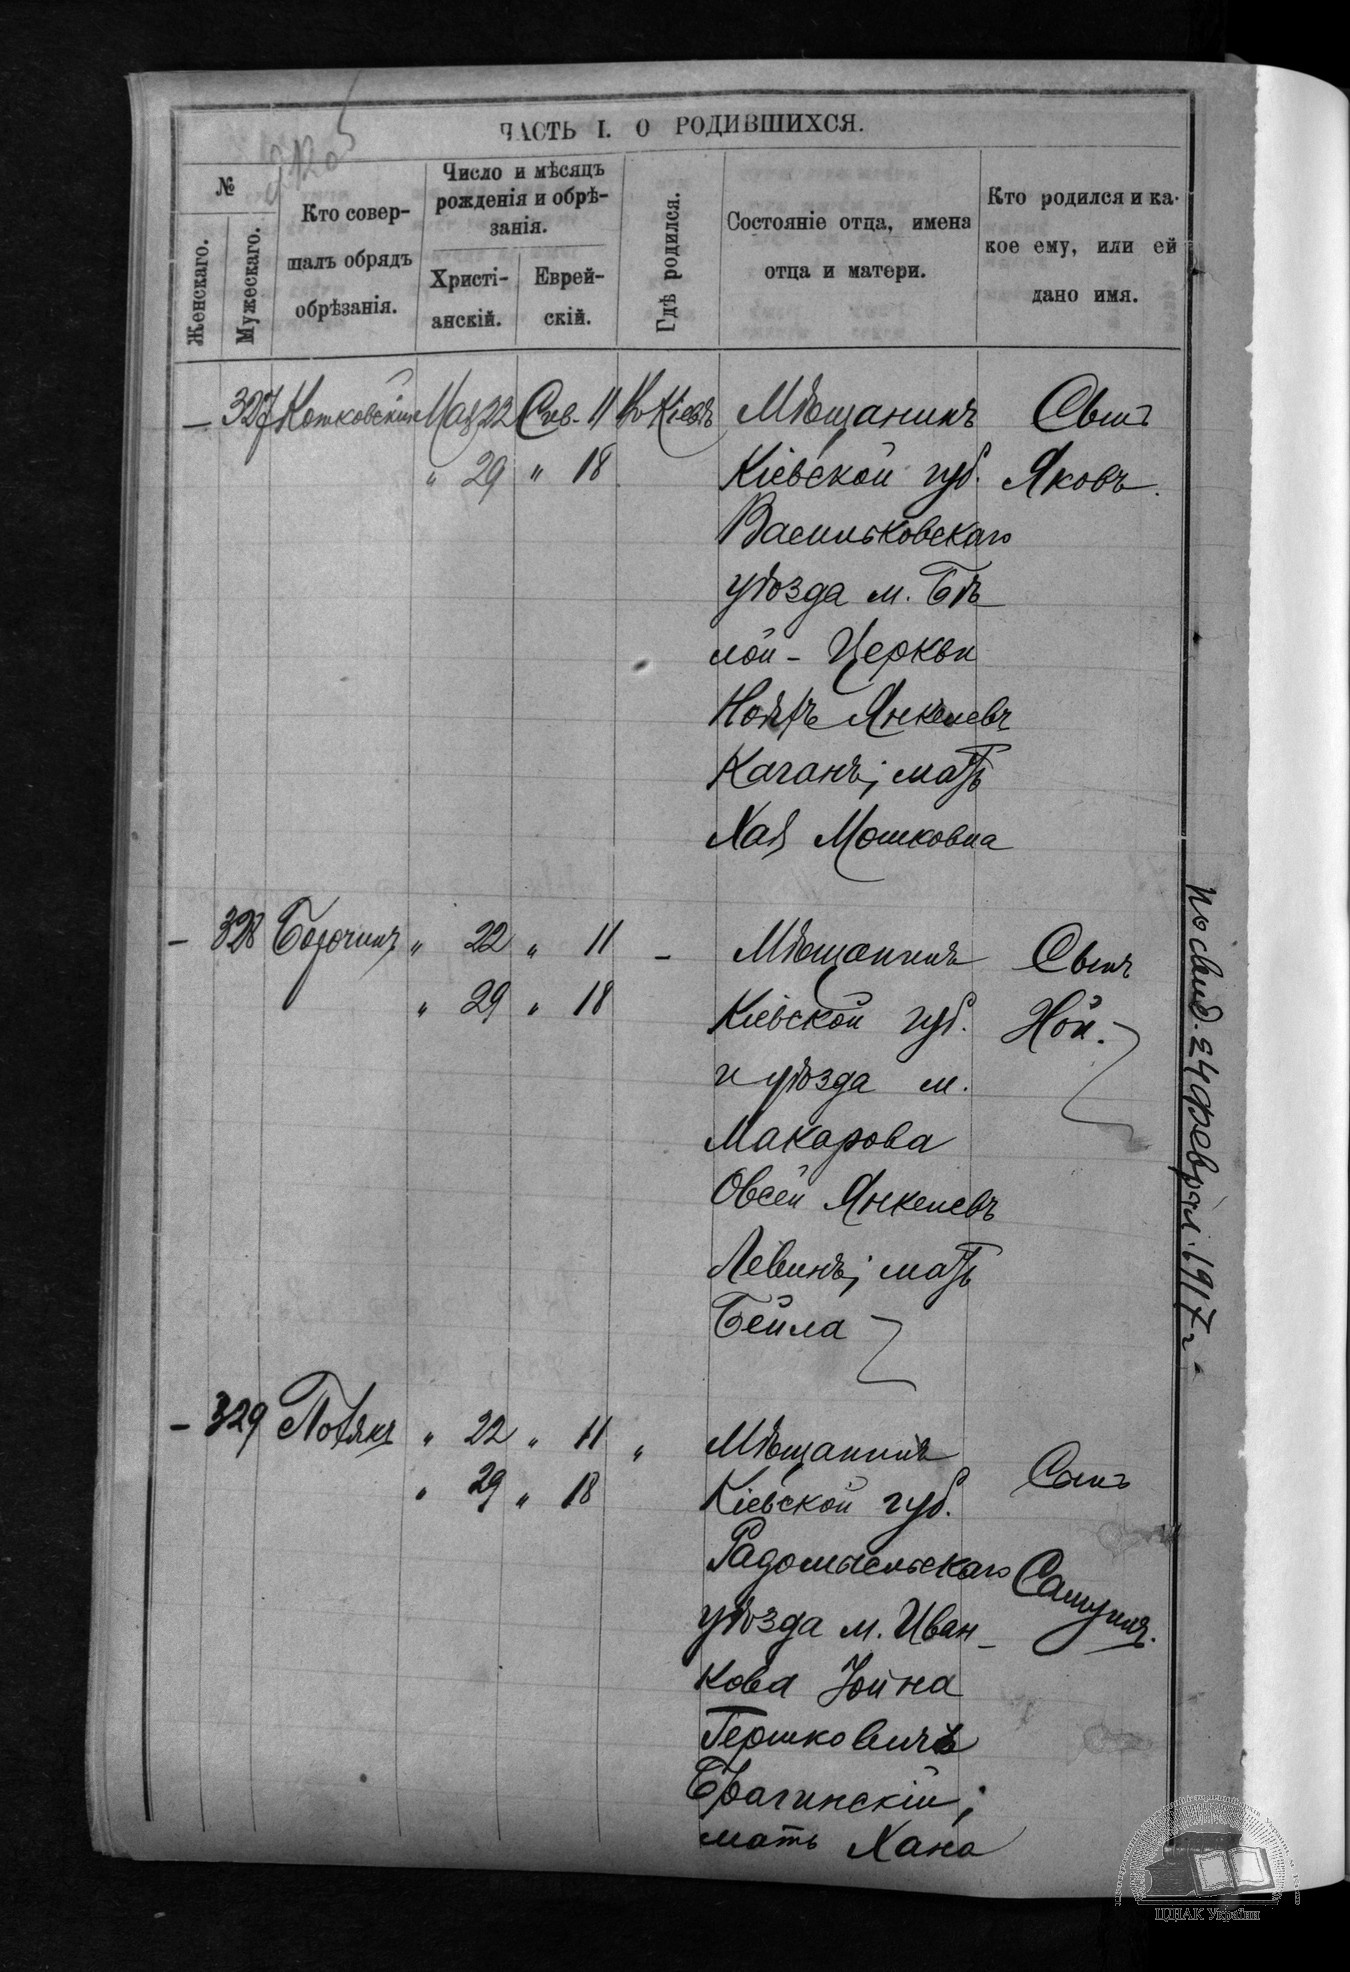 ЧАСТЬ I. О РОДИВШИХСЯ.
№
Женскаго.
Мужескаго.
Кто совер-
шалъ обрядъ
обрѣзанія.
Число и мѣсяцъ
рожденія и обрѣ-
занія.
Христі-
анскій.
Еврей-
скій.
Гдѣ родился.
Состояніе отца, имена
отца и матери.
Кто родился и ка-
кое ему, или ей
дано имя.
— 327 Котковскій Мая 22 Сив. 11 Въ Кіевѣ Мѣщанинъ Сынъ
" 29 " 18 Кіевской губ. Яковъ.
Васильковскаго
уѣзда м. Бѣ
лой - Церкви
Янкелевъ
Каганъ; мать
Хая Мошковна
— 328 " 22 " 11 — Мѣщанинъ Сынъ
" 29 " 18 Кіевской губ. Ной.
и уѣзда м.
Макарова
Овсей Янкелевъ
Левинъ; мать
Бейла
— 329 " 22 " 11 " Мѣщанинъ
" 29 " 18 Кіевской губ. Сынъ
Радомысльскаго Самуилъ.
уѣзда м. Иван-
кова Іойна
Гершковичъ
Брагинскій;
мать Хана
по свид. 24 феврал. 1917 г.
ЦДІАК України